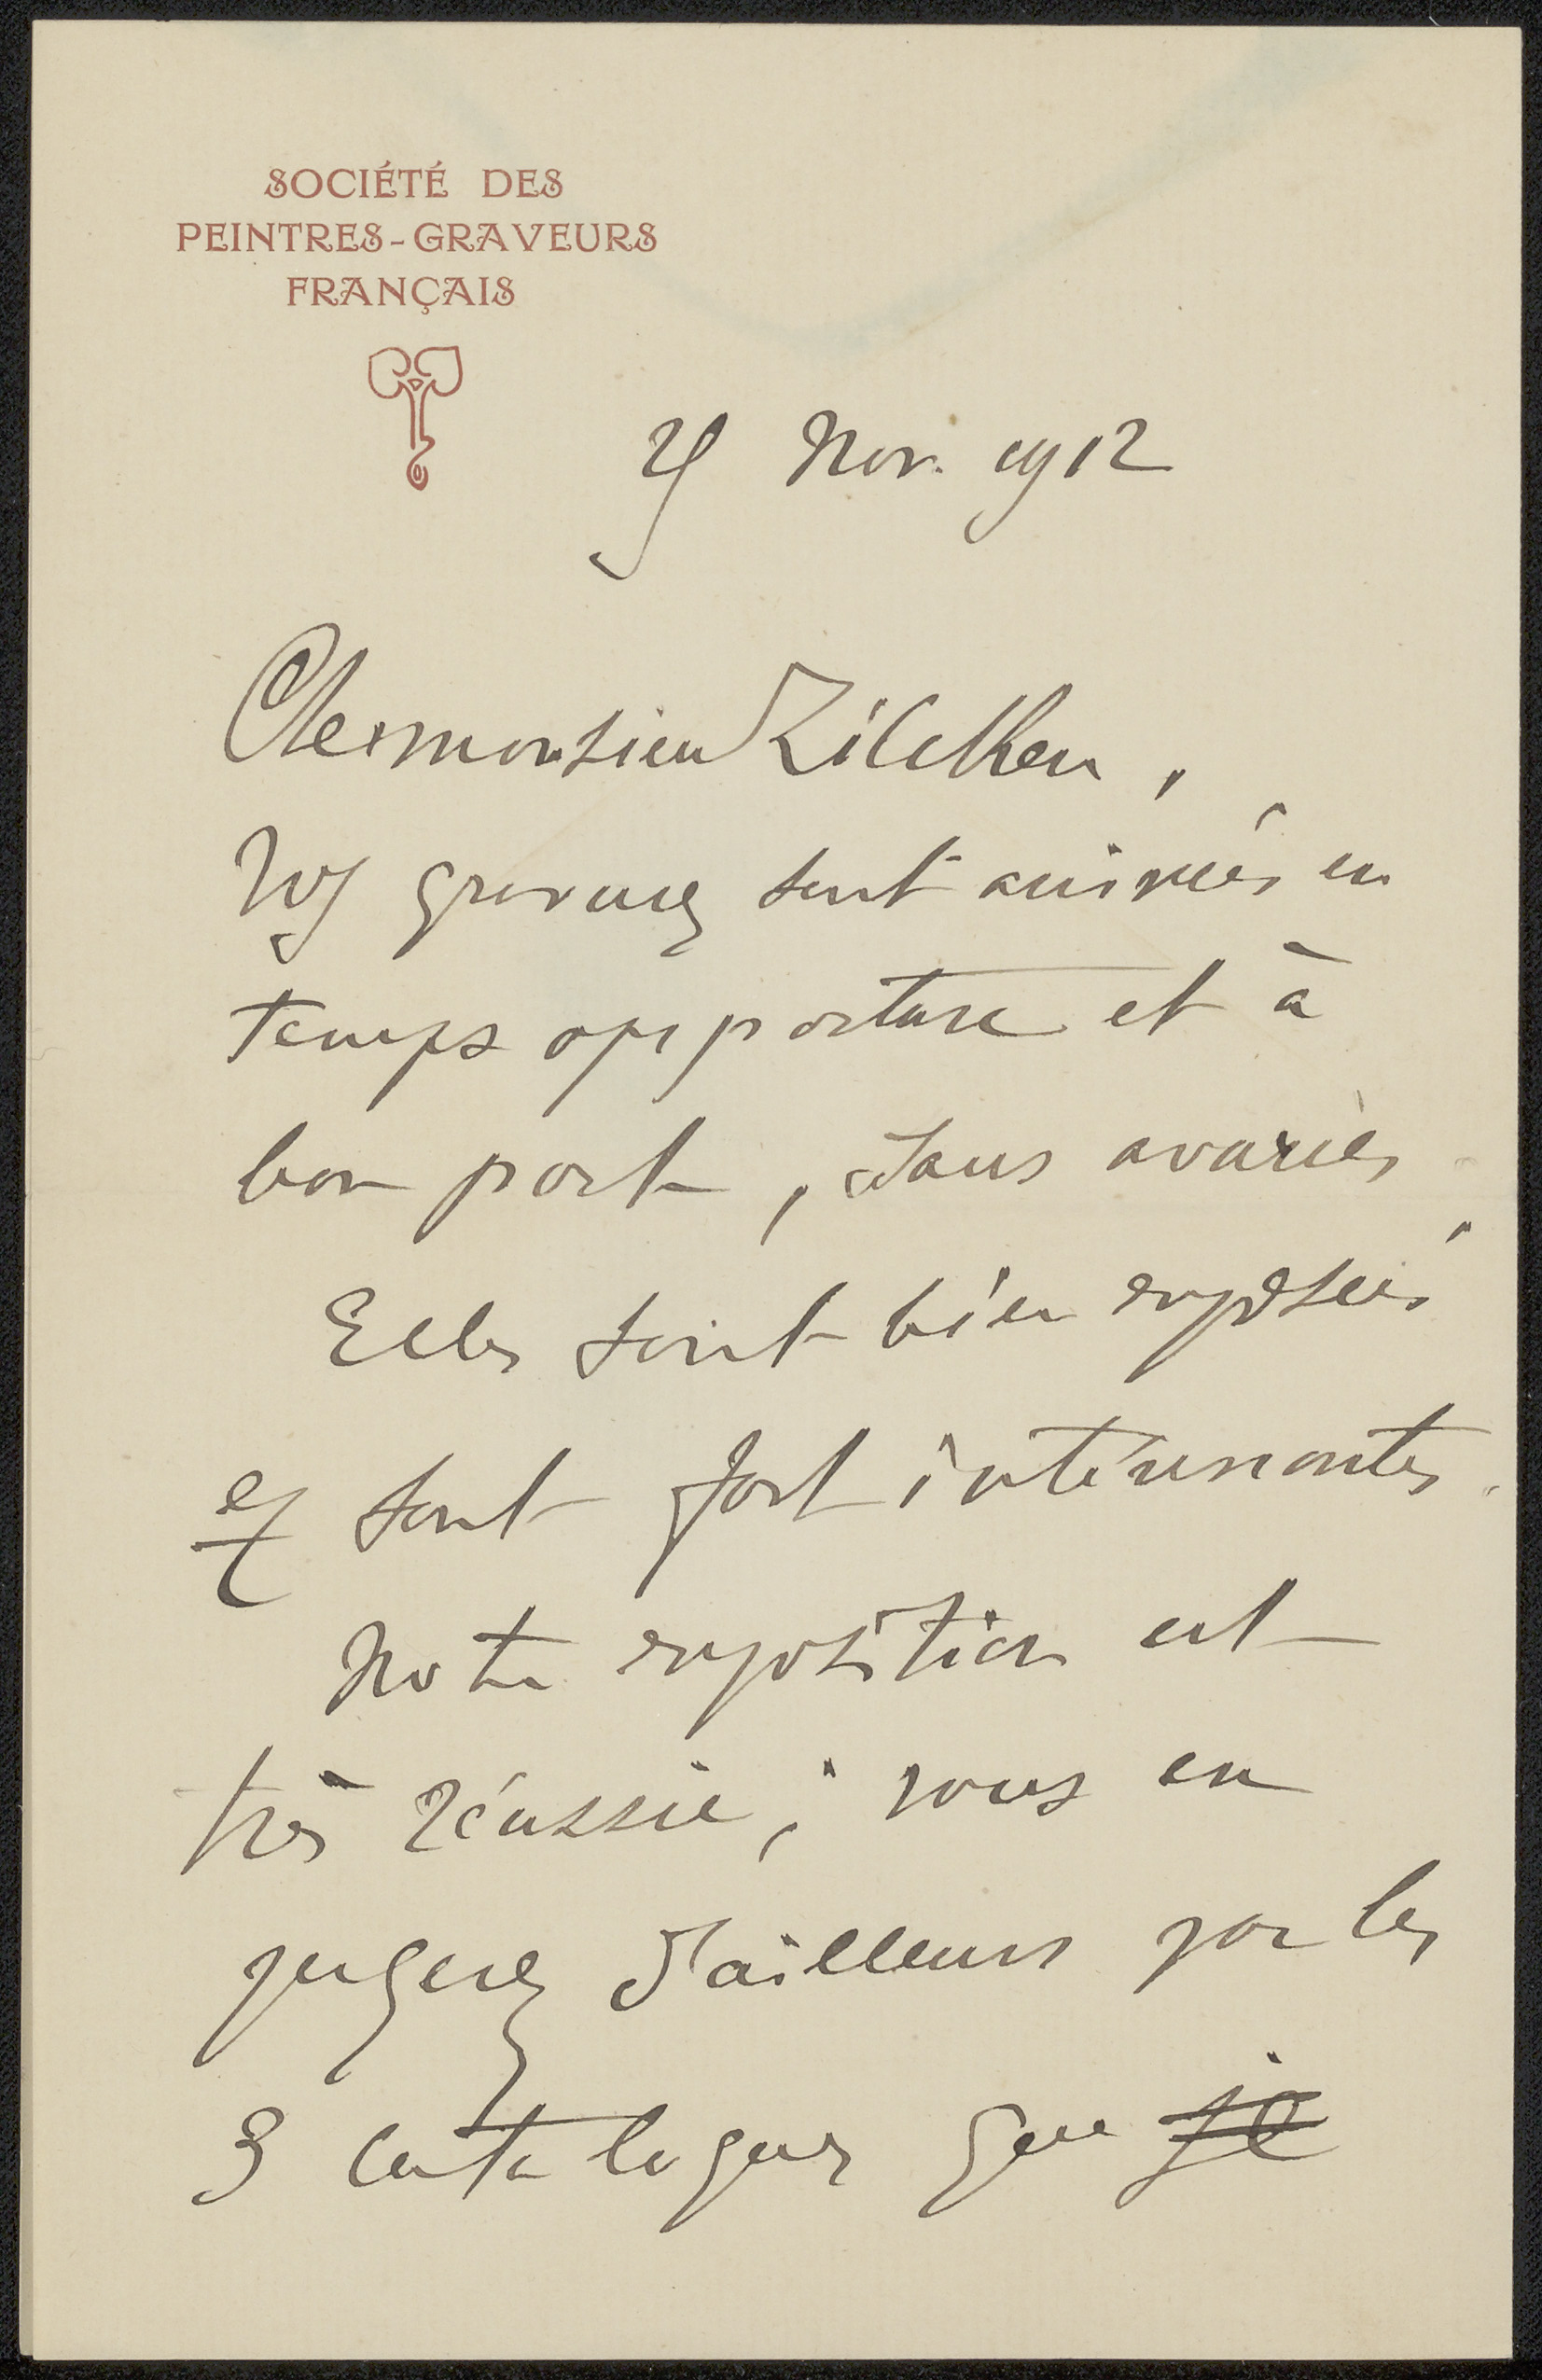 SOCIÉTÉ DES
PEINTRES-GRAVEURS
FRANÇAIS
Nov. 1912
Cher monsieur Zilcken,
Vos gravures sont arrivées en
temps opportun et à
bon port, sans avaries.
Elles sont bien exposées
et sont fort intéressantes.
Notre exposition est
très réussie; vous en
jugerez d'ailleurs par les
3 catalogues que je